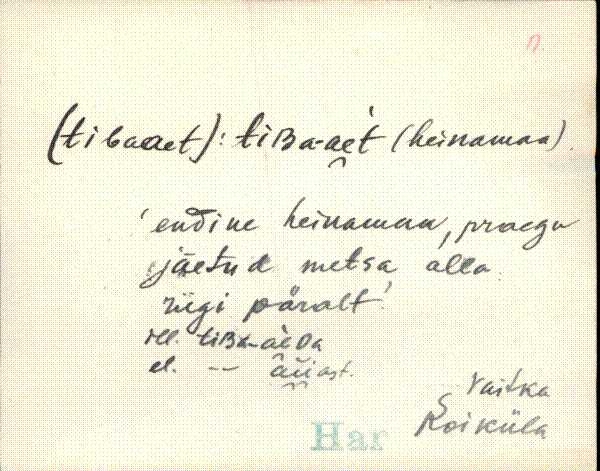 n.
(tibaaet): tiBa-aet (heinamaa).
'endine heinamaa, praegu
jäetud metsa alla
riigi päralt'
ill. tiBa-aeDa
el. — äiast.
Vaitka
Koiküla
Har